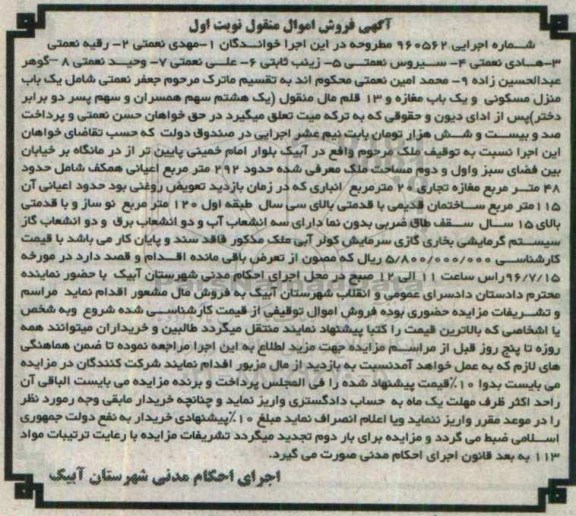 آگهی فروش اموال منقول نوبت اول
شماره اجرایی ۹۶۰۵۶۲ مطروحه در این اجرا خوانـدگان ۱-مهدی نعمتی ۲- رقیه نعمتی
۳-هـادی نعمتی ۴- سیروس نعمتـی ۵- زینب ثابتی ۶- علـی نعمتی ۷- وحیـد نعمتی ۸-گوهر
عبدالحسین زاده ۹- محمد امین نعمتی محکوم اند به تقسیم ماترک مرحوم جعفر نعمتی شامل یک باب
منزل مسکونی و یک باب مغازه و ۱۳ قلم مال منقول (یک هشتم سهم همسران و سهم پسر دو برابر
دختر)پس از ادای دیون و حقوقی که به ترکه میت تعلق میگیرد در حق خواهان حسن نعمتی و پرداخت
صد و بیسـت و شـش هزار تومان بابت نیم عشر اجرایی در صندوق دولت که حسب تقاضای خواهان
این اجرا نسبت به توقیف ملک مرحوم واقع در آبیک بلوار امام خمینی پایین تر از در مانگاه بر خیابان
بین فضای سبز واول و دوم مساحت ملک معرفی شده حدود ۲۹۲ متر مربع اعیانی همکف شامل حدود
۴۸ متـر مربع مغازه تجاری ۲۰ مترمربع انباری که در زمان بازدید تعویض روغنی بود حدود اعیانی آن
۱۱۵متر مربع ساختمان قدیمی با قدمتی بالای سی سال طبقه اول ۱۲۰ متر مربع نو ساز و با قدمتی
بالای ۱۵ سـال سـقف طاق ضربی بدون نما دارای سه انشعاب آب و دو انشعاب برق و دو انشعاب گاز
سیسـتم گرمایشی بخاری گازی سرمایش کولر آبی ملک مذکور فاقد سند و پایان کار می باشد با قیمت
کارشناسـی ۵/۸۰۰/۰۰۰/۰۰۰ ریال که مصون از تعرض باقی مانده اقـدام و قصد دارد در مورخه
۹۶/۷/۱۵راس ساعت ۱۱ الی ۱۲ صبح در محل اجرای احکام مدنی شهرستان آبیک با حضور نماینده
محترم دادستان دادسرای عمومی و انقلاب شهرستان آبیک به فروش مال مشعور اقدام نماید مراسم
و تشـریفات مزایده حضوری بوده فروش اموال توقیفی از قیمت کارشناسـی شده شروع وبه شخص
یا اشخاصی که بالاترین قیمت را کتبا پیشنهاد نمایند منتقل میگردد طالبین و خریداران میتوانند همه
روزه تا پنج روز قبل از مراسـم مزایده جهت مزید اطلاع به این اجرا مراجعه نموده تا ضمن هماهنگی
های لازم که به عمل خواهد آمدنسبت به بازدید از مال مزبور اقدام نمایند شرکت کنندگان در مزایده
می بایست بدوا ۱۰٪قیمت پیشنهاد شده را فی المجلس پرداخت و برنده مزایده می بایست الباقی آن
راحد اکثر ظرف مهلت یک ماه به حساب دادگستری واریز نماید و چنانچه خریدار مابقی وجه رمورد نظر
را در موعد مقرر واریز ننماید ویا اعلام انصراف نماید مبلغ ۱۰٪پیشنهادی خریدار به نفع دولت جمهوری
اسـلامی ضبط می گردد و مزایده برای بار دوم تجدید میگردد تشریفات مزایده با رعایت ترتیبات مواد
۱۱۳ به بعد قانون اجرای احکام مدنی صورت می گیرد.
اجرای احکام مدنی شهرستان آبیک